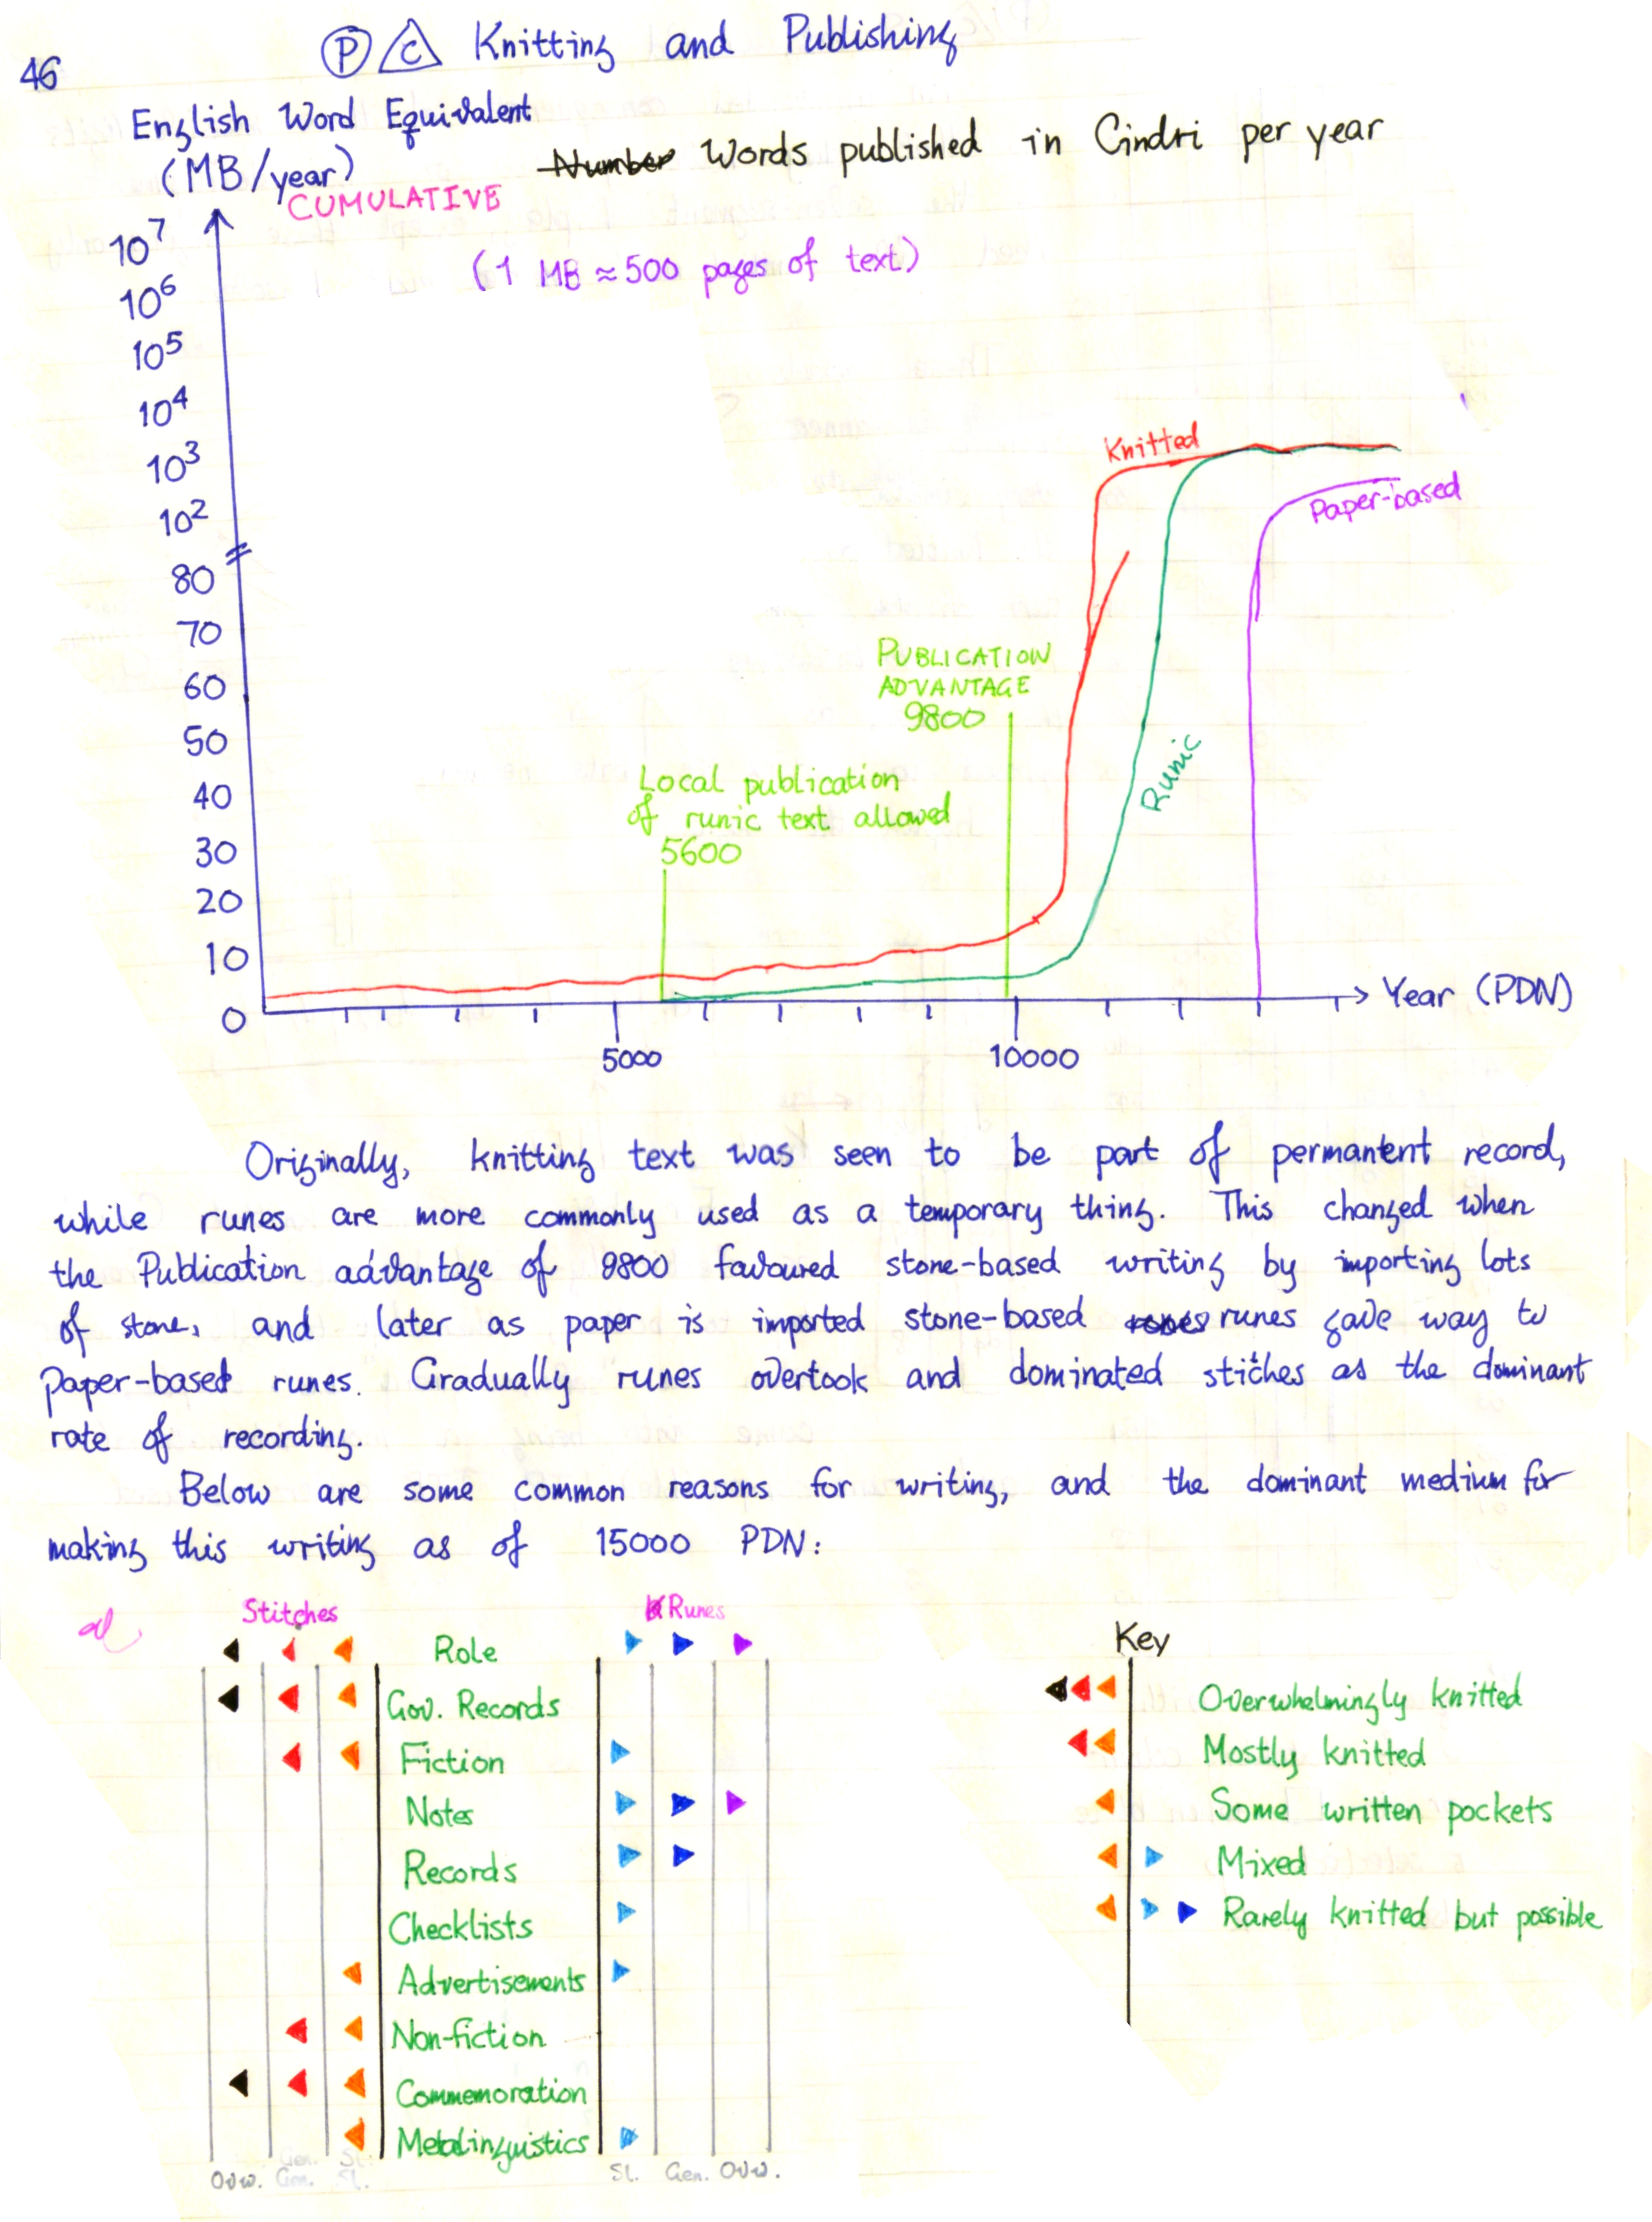 46
P C Knitting and Publishing
English Word Equivalent
(MB/year)
Number Words published in Cindri per year
CUMULATIVE
(1 MB ≈ 500 pages of text)
10⁷
10⁶
10⁵
10⁴
10³
10²
80
70
60
50
40
30
20
10
0
Knitted
Paper-based
PUBLICATION
ADVANTAGE
9800
Runic
Local publication
of runic text allowed
5600
5000
10000
Year (PDN)
Originally, knitting text was seen to be part of permanent record,
while runes are more commonly used as a temporary thing. This changed when
the Publication advantage of 9800 favoured stone-based writing by importing lots
of stone, and later as paper is imported stone-based runes gave way to
paper-based runes. Gradually runes overtook and dominated stitches as the dominant
rate of recording.
Below are some common reasons for writing, and the dominant medium for
making this writing as of 15000 PDN:
Stitches
Runes
Role
Gov. Records
Fiction
Notes
Records
Checklists
Advertisements
Non-fiction
Commemoration
Metalinguistics
Ovw. Gen. Sl.
Sl. Gen. Ovw.
Key
Overwhelmingly knitted
Mostly knitted
Some written pockets
Mixed
Rarely knitted but possible